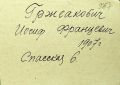 Гржсакович
Иосиф Францевич
1907г.
Спасская 6